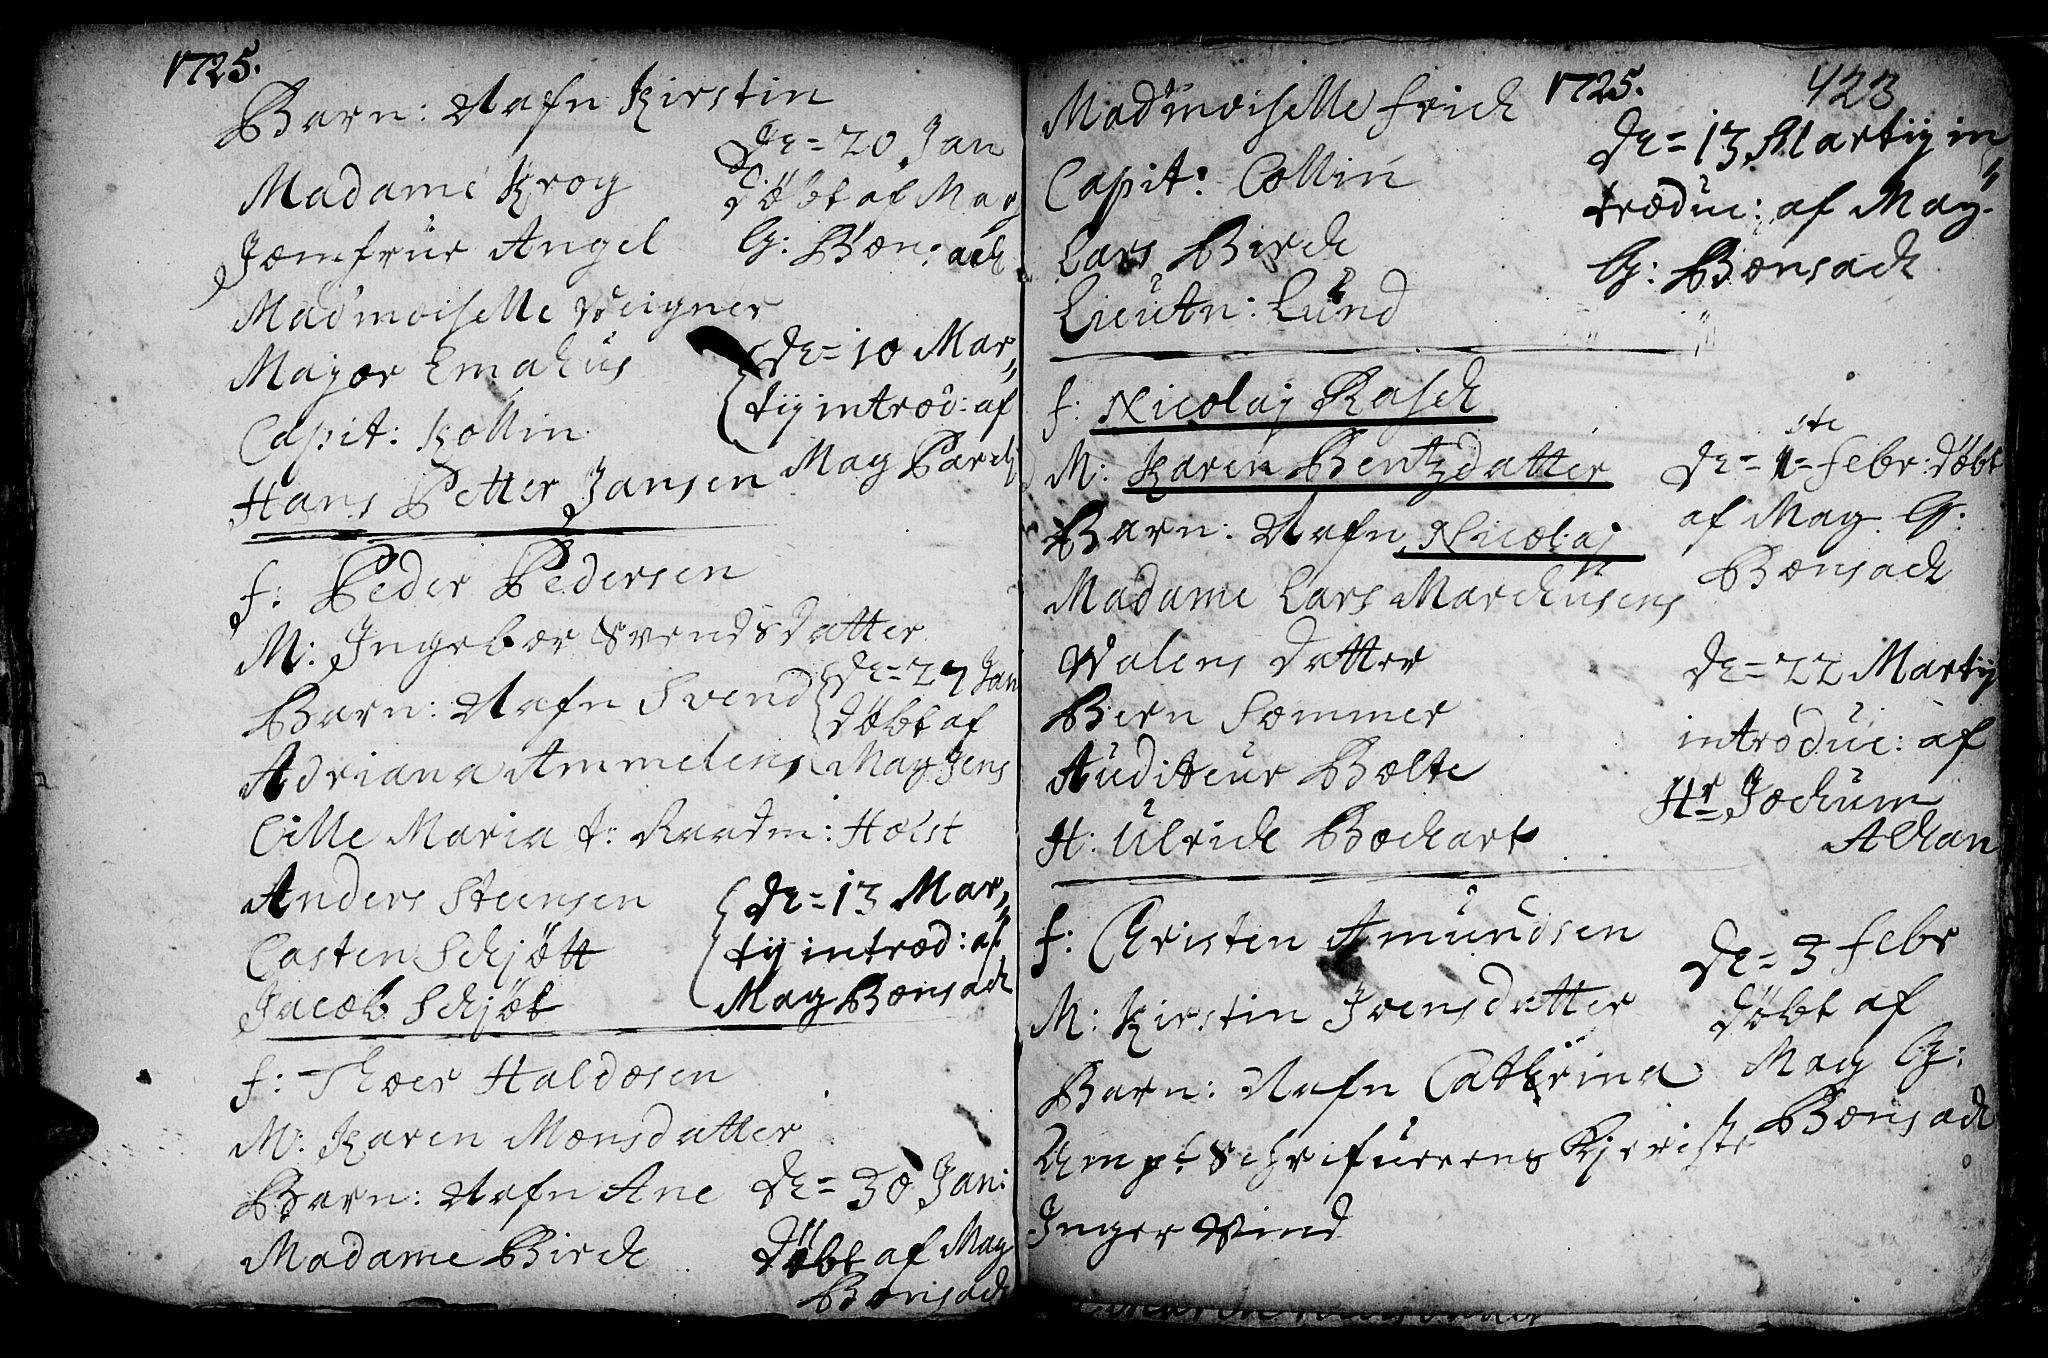 1725.
Barn: Nafn Kirstin
Madame Krog
Jomfrur Angel
Madmoiselle Veigner
Major Emahus
Capit: Kollin
Hans Petter Jansen
De = 20 Jan
Døbt af Mag
G: Bonsach
De = 10 Mar,,
tij introd: af
Mag Parch
f: Peder Pedersen
M: Ingebor Svendsdatter
Barn: Nafn Svend
Adriana Ammelens
Cille Maria t: Raadm: Holst
Anders Steensen
Casten Schjøtt
Jacob Schjøt
De = 27 Jan
Døbt af
Mag Jens
De = 13 Mar,,
tij introd: af
Mag Bonsach
f: Thoer Haldosen
M: Karen Monsdatter
Barn: Nafn Ane
Madame Birch
De = 30 Jan:
Døbt af Mag
Bonsach
1725.
423
Madmoiselle Frich
Capit: Collin
Lars Birch
Lieutn: Lund
De = 13 Martij in,,
troduc: af Mag.
G: Bonsach
f: Nicolaj Rasch
M: Karen Bentzdatter
Barn: Nafn Nicolaj
Madame Lars Marchusens
Walens datter
Bern Sommer
Auditeur Bolte
H: Ulrich Bochart
De = 1ste Febr: Døbt
af Mag. G:
Bonsach
De = 22 Martij
introduc: af
Hr Jochum
Alhan
f: Christen Amundsen
M: Kirstin Joensdatter
Barn: Nafn Cathrina
Ampt Schrifuerens Kjeriste
Inger Vind
De = 3 Febr
Døbt af
Mag G:
Bonsach